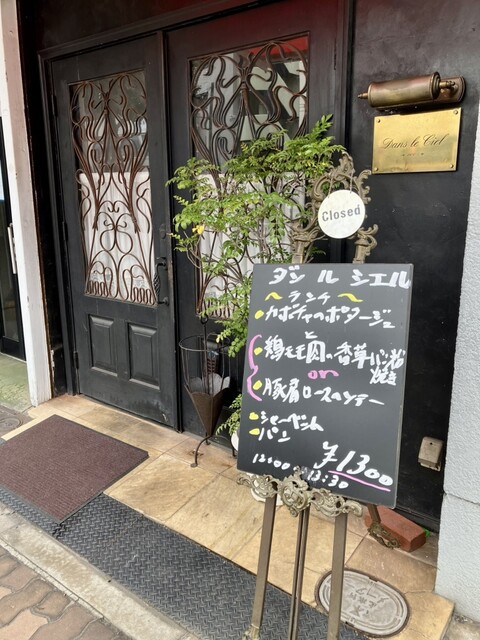 Dans le Ciel
Closed
ダン ル シエル
〜ランチ〜
・カボチャのポタージュ
と
・鶏もも肉の香草パン粉
焼き
or
・豚肩ロースのソテー
・シャーベット
・パン
¥1300
12:00 13:30